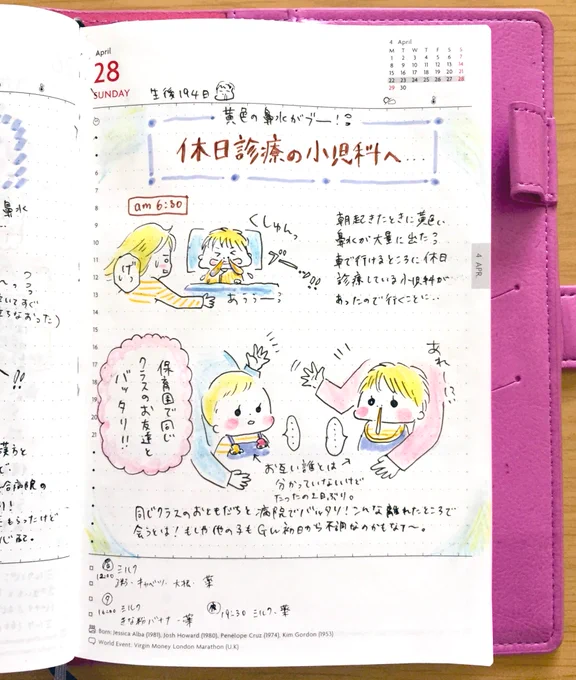 April
28
SUNDAY
生後194日
4 April
M T W T F S S
1 2 3 4 5 6 7
8 9 10 11 12 13 14
15 16 17 18 19 20 21
22 23 24 25 26 27 28
29 30
黄色の鼻水がブー!
休日診療の小児科へ...
am 6:30
くしゅんっ
げっ
あうぅー
朝起きたときに黄色い
鼻水が大量に出た
車で行けるところに休日
診療している小児科が
あったので行くことに...
4 APR.
保育園で同じ
クラスのお友達と
バッタリ!!
あれ
!?
お互い誰とは
分かっていないけど
たったの2日ぶり。
同じクラスのおともだちと病院でバッタリ!こんな離れたところで
会うとは!もしや他の子もGW初日から不調なのかもなァ〜。
ミルク
キャベツ 大根 薬
ミルク
きな粉バナナ 薬
19:30 ミルク、薬
Born: Jessica Alba (1981), Josh Howard (1980), Penelope Cruz (1974), Kim Gordon (1953)
World Event: Virgin Money London Marathon (U.K)
6
7
8
9
10
11
12
13
14
15
16
17
18
19
20
21
鼻水